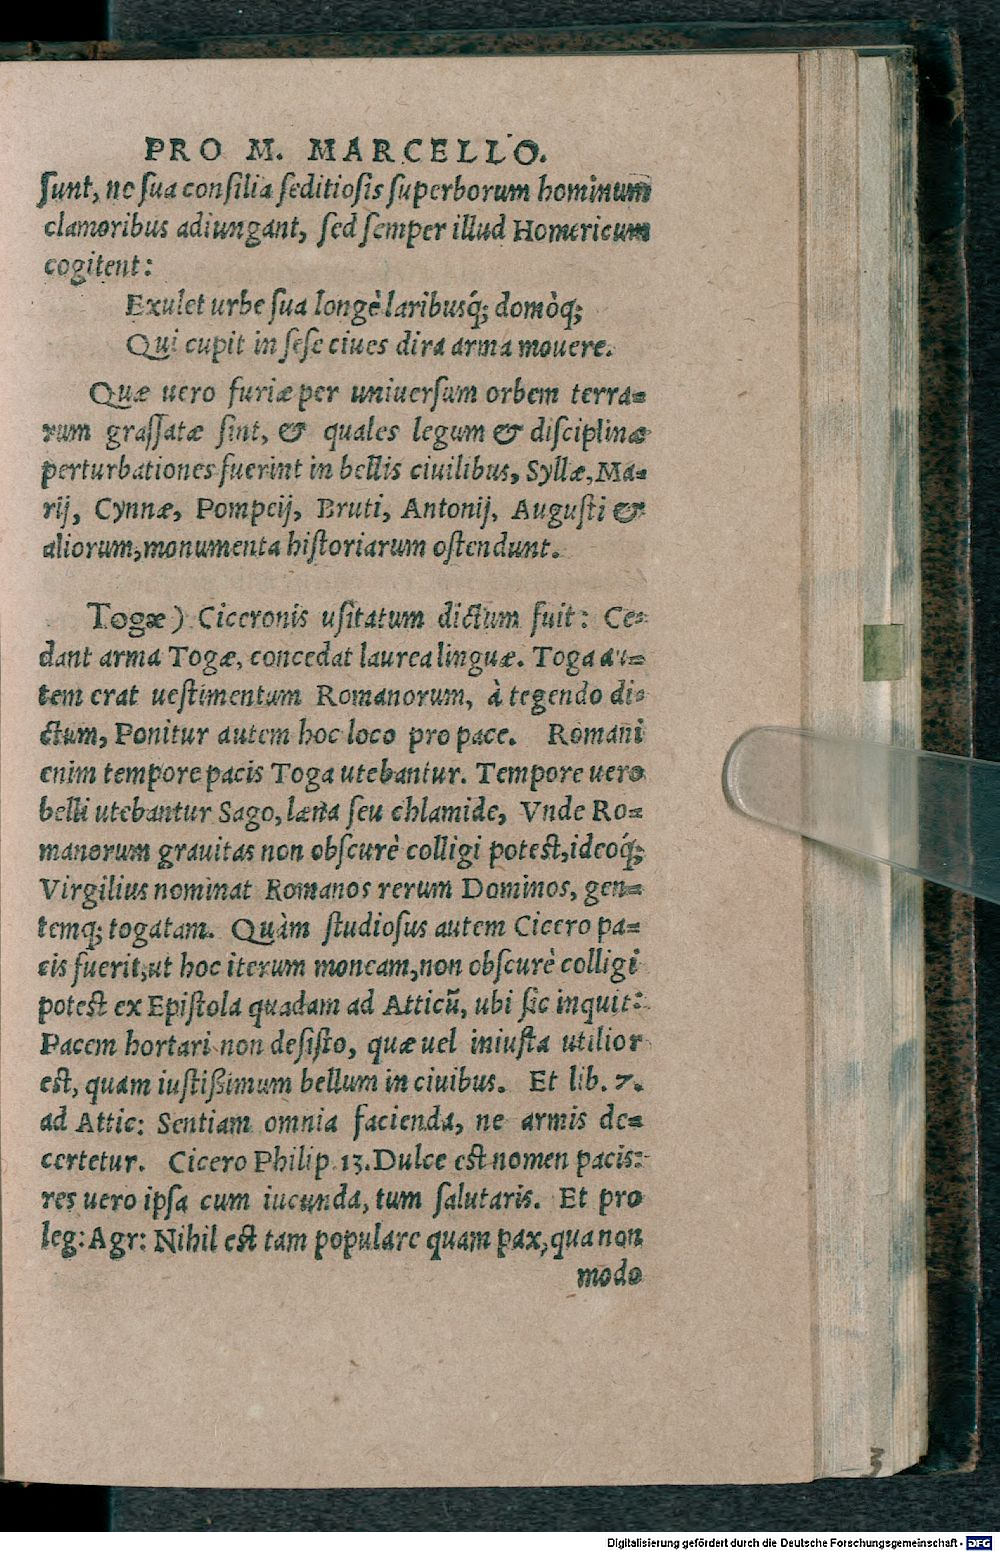 PRO M. MARCELLO.
ſunt, ne ſua conſilia ſeditioſis ſuperborum hominum
clamoribus adiungant, ſed ſemper illud Homericum
cogitent:
Exulet urbe ſua longè laribusq́; domòq;
Qui cupit in ſeſe ciues dira arma mouere.
Quæ uero furiæ per uniuerſum orbem terra=
rum graſſatæ ſint, & quales legum & diſciplinæ
perturbationes fuerint in bellis ciuilibus, Syllæ, Ma=
rij, Cynnæ, Pompeij, Bruti, Antonij, Auguſti &
aliorum, monumenta hiſtoriarum oſtendunt.
Togæ) Ciceronis uſitatum dictum fuit: Ce=
dant arma Togæ, concedat laurea linguæ. Toga au=
tem erat ueſtimentum Romanorum, à tegendo di=
ctum, Ponitur autem hoc loco pro pace. Romani
enim tempore pacis Toga utebantur. Tempore uero
belli utebantur Sago, læna ſeu chlamide, Vnde Ro=
manorum grauitas non obſcurè colligi poteſt, ideoq́;
Virgilius nominat Romanos rerum Dominos, gen=
temq; togatam. Quàm ſtudioſus autem Cicero pa=
cis fuerit, ut hoc iterum moneam, non obſcurè colligi
poteſt ex Epiſtola quadam ad Atticũ, ubi ſic inquit:
Pacem hortari non deſiſto, quæ uel iniuſta utilior
eſt, quam iuſtiſsimum bellum in ciuibus. Et lib. 7.
ad Attic: Sentiam omnia facienda, ne armis de=
certetur. Cicero Philip. 13. Dulce eſt nomen pacis:
res uero ipſa cum iucunda, tum ſalutaris. Et pro
leg: Agr: Nihil eſt tam populare quam pax, qua non
modo
3
Digitalisierung gefördert durch die Deutsche Forschungsgemeinschaft - DFG